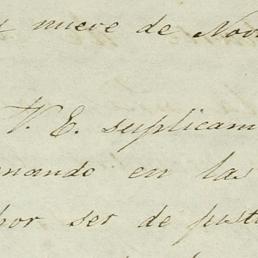 nueve de Nov
V. E. suplicam
mando en las
por ser de just